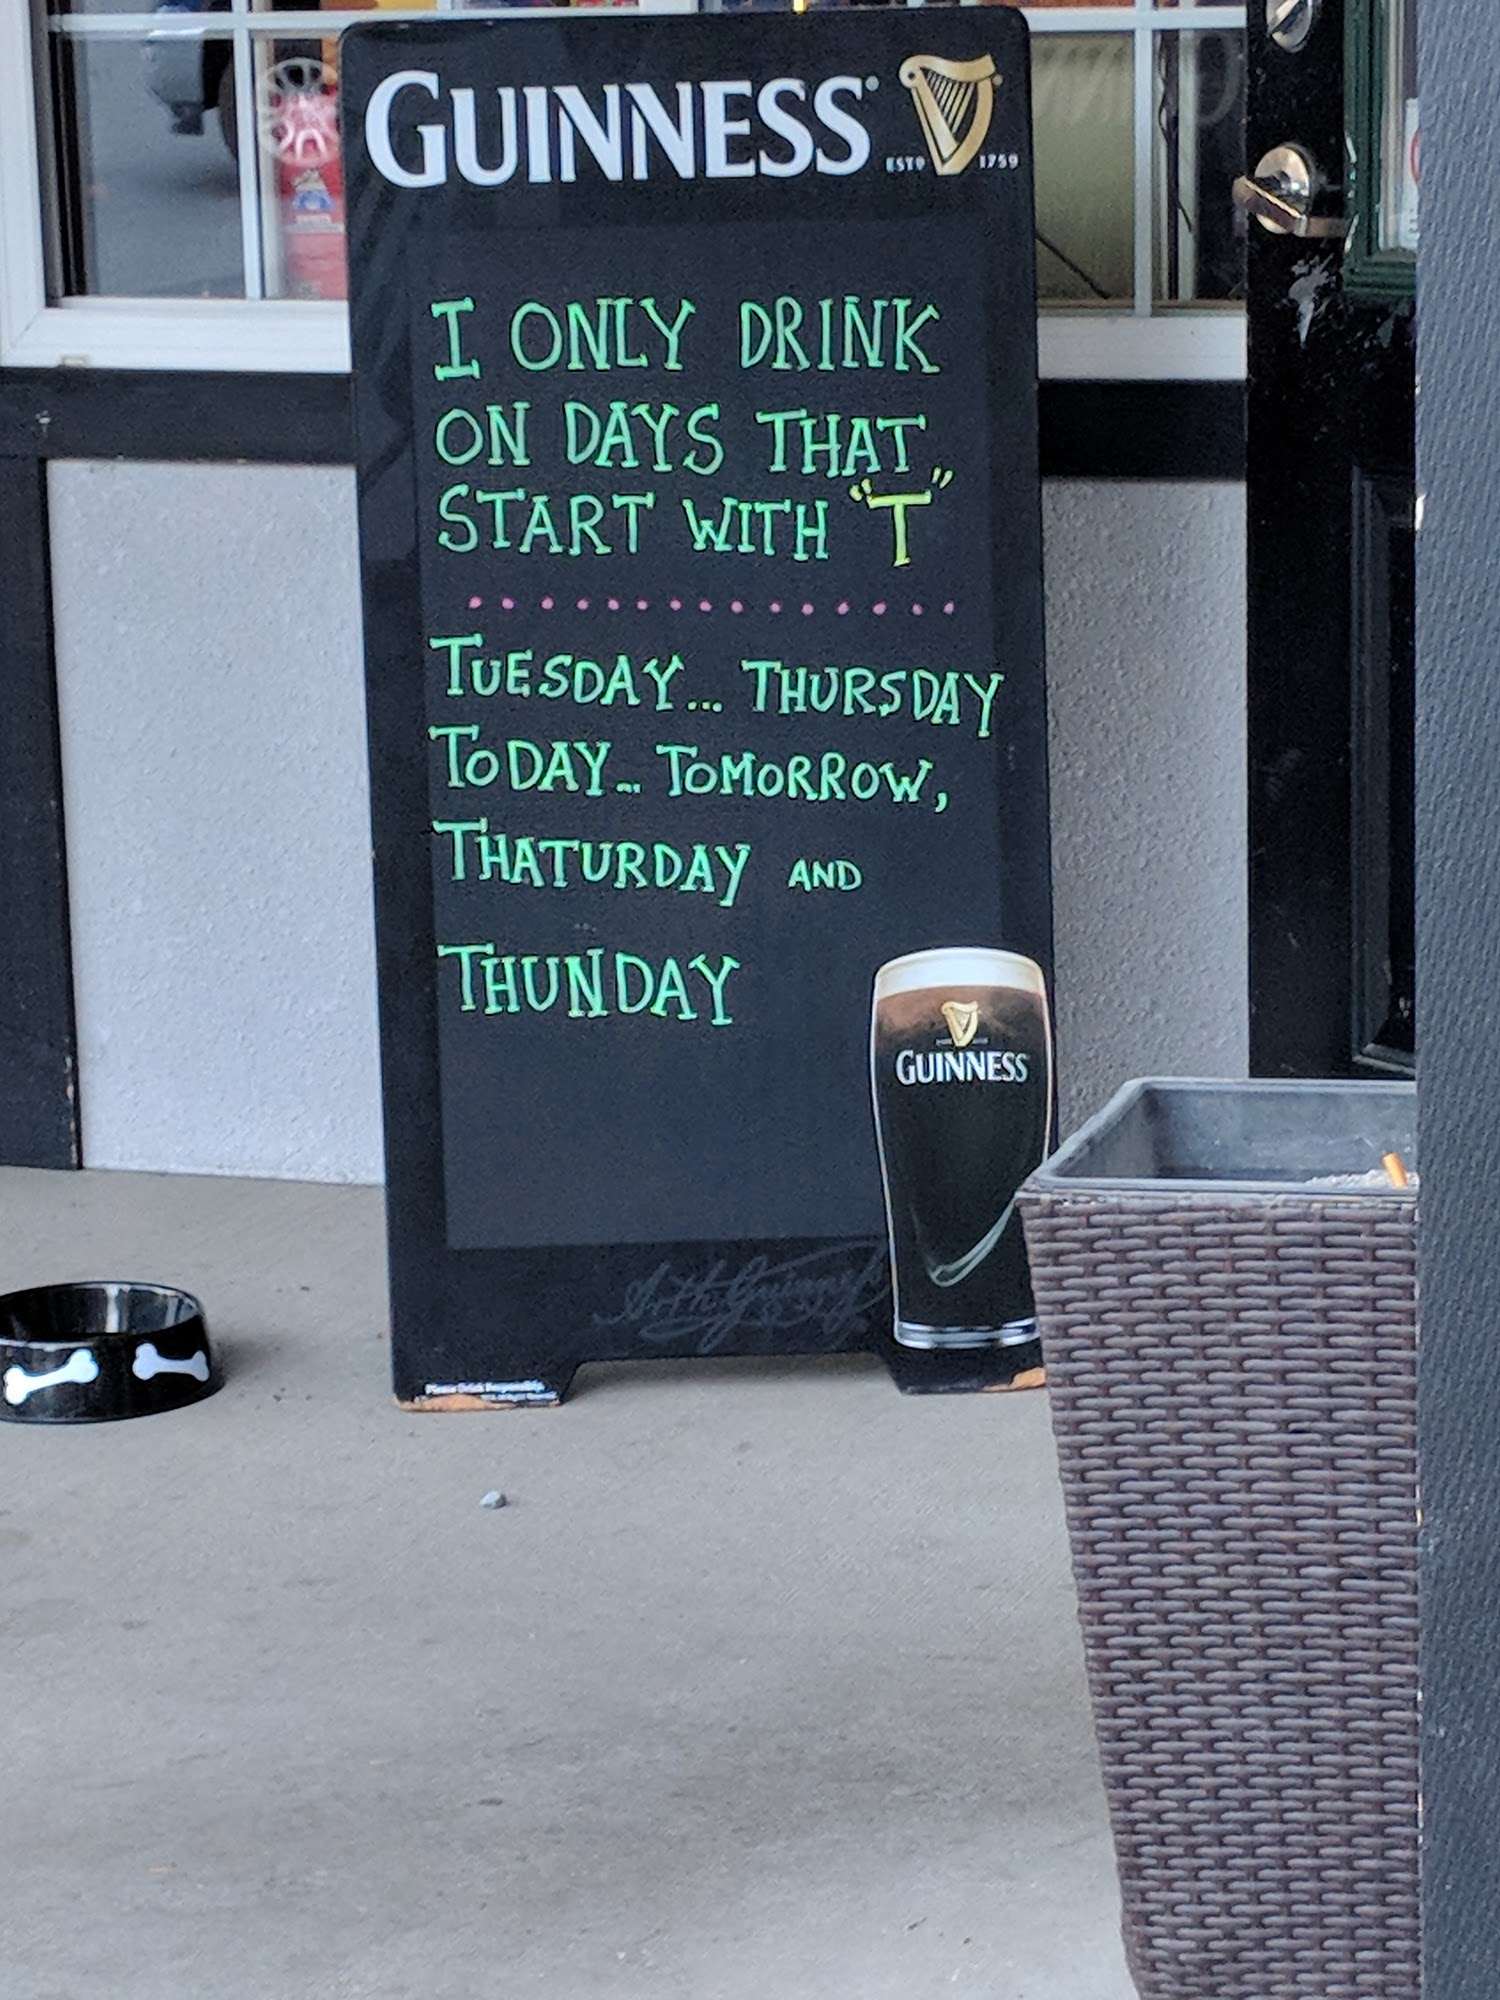 GUINNESS
ESTD 1759
I ONLY DRINK
ON DAYS THAT
START WITH "T"
TUESDAY... THURSDAY
TODAY... TOMORROW,
THATURDAY AND
THUNDAY
GUINNESS
Please Drink Responsibly.